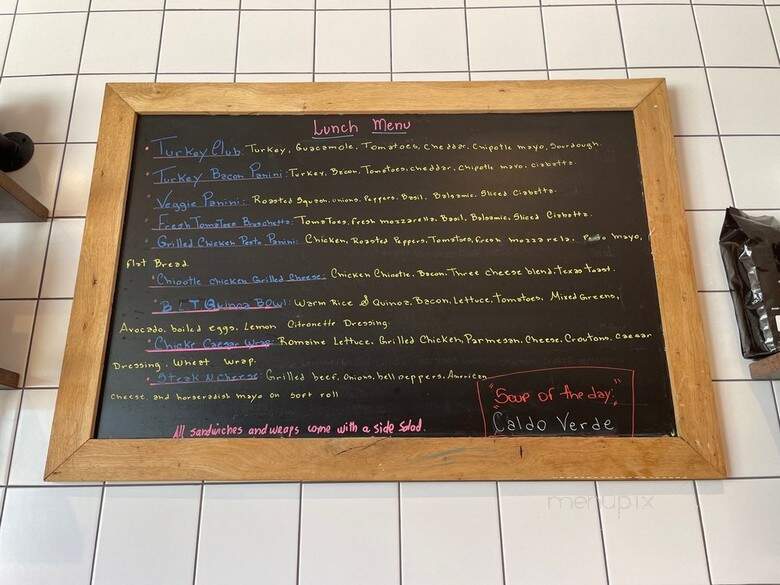 Lunch Menu
Turkey Club: Turkey, Guacamole, Tomatoes, cheddar, Chipotle mayo, Sourdough.
Turkey Bacon Panini: Turkey, Bacon, Tomatoes, cheddar, chipotle mayo, ciabatta.
Veggie Panini: Roasted Squash, onions, Peppers, Basil, Balsamic, Sliced Ciabatta.
Fresh Tomatoes Bruschetta: Tomatoes, fresh mozzarella, Basil, Balsamic, Sliced Ciabatta.
Grilled Chicken Pesto Panini: Chicken, Roasted Peppers, Tomatoes, fresh mozzarela, mayo,
flat Bread.
Chipotle chicken Grilled Cheese: Chicken Chipotle, Bacon, Three cheese blend, Texas Toast.
B T Quinoa Bowl: Warm Rice & Quinoa, Bacon, Lettuce, Tomatoes, Mixed Greens,
Avocado, boiled eggs, Lemon Citronette Dressing.
Chicke Caesar Wrap: Romaine Lettuce, Grilled Chicken, Parmesan, Cheese, Croutons, caesar
Dressing, Wheat Wrap.
Steak N Cheese: Grilled beef, Onions, bell peppers, American
cheese, and horseradish mayo on soft roll
"Soup of the day:"
Caldo Verde
All sandwiches and wraps come with a side Salad.
menupix